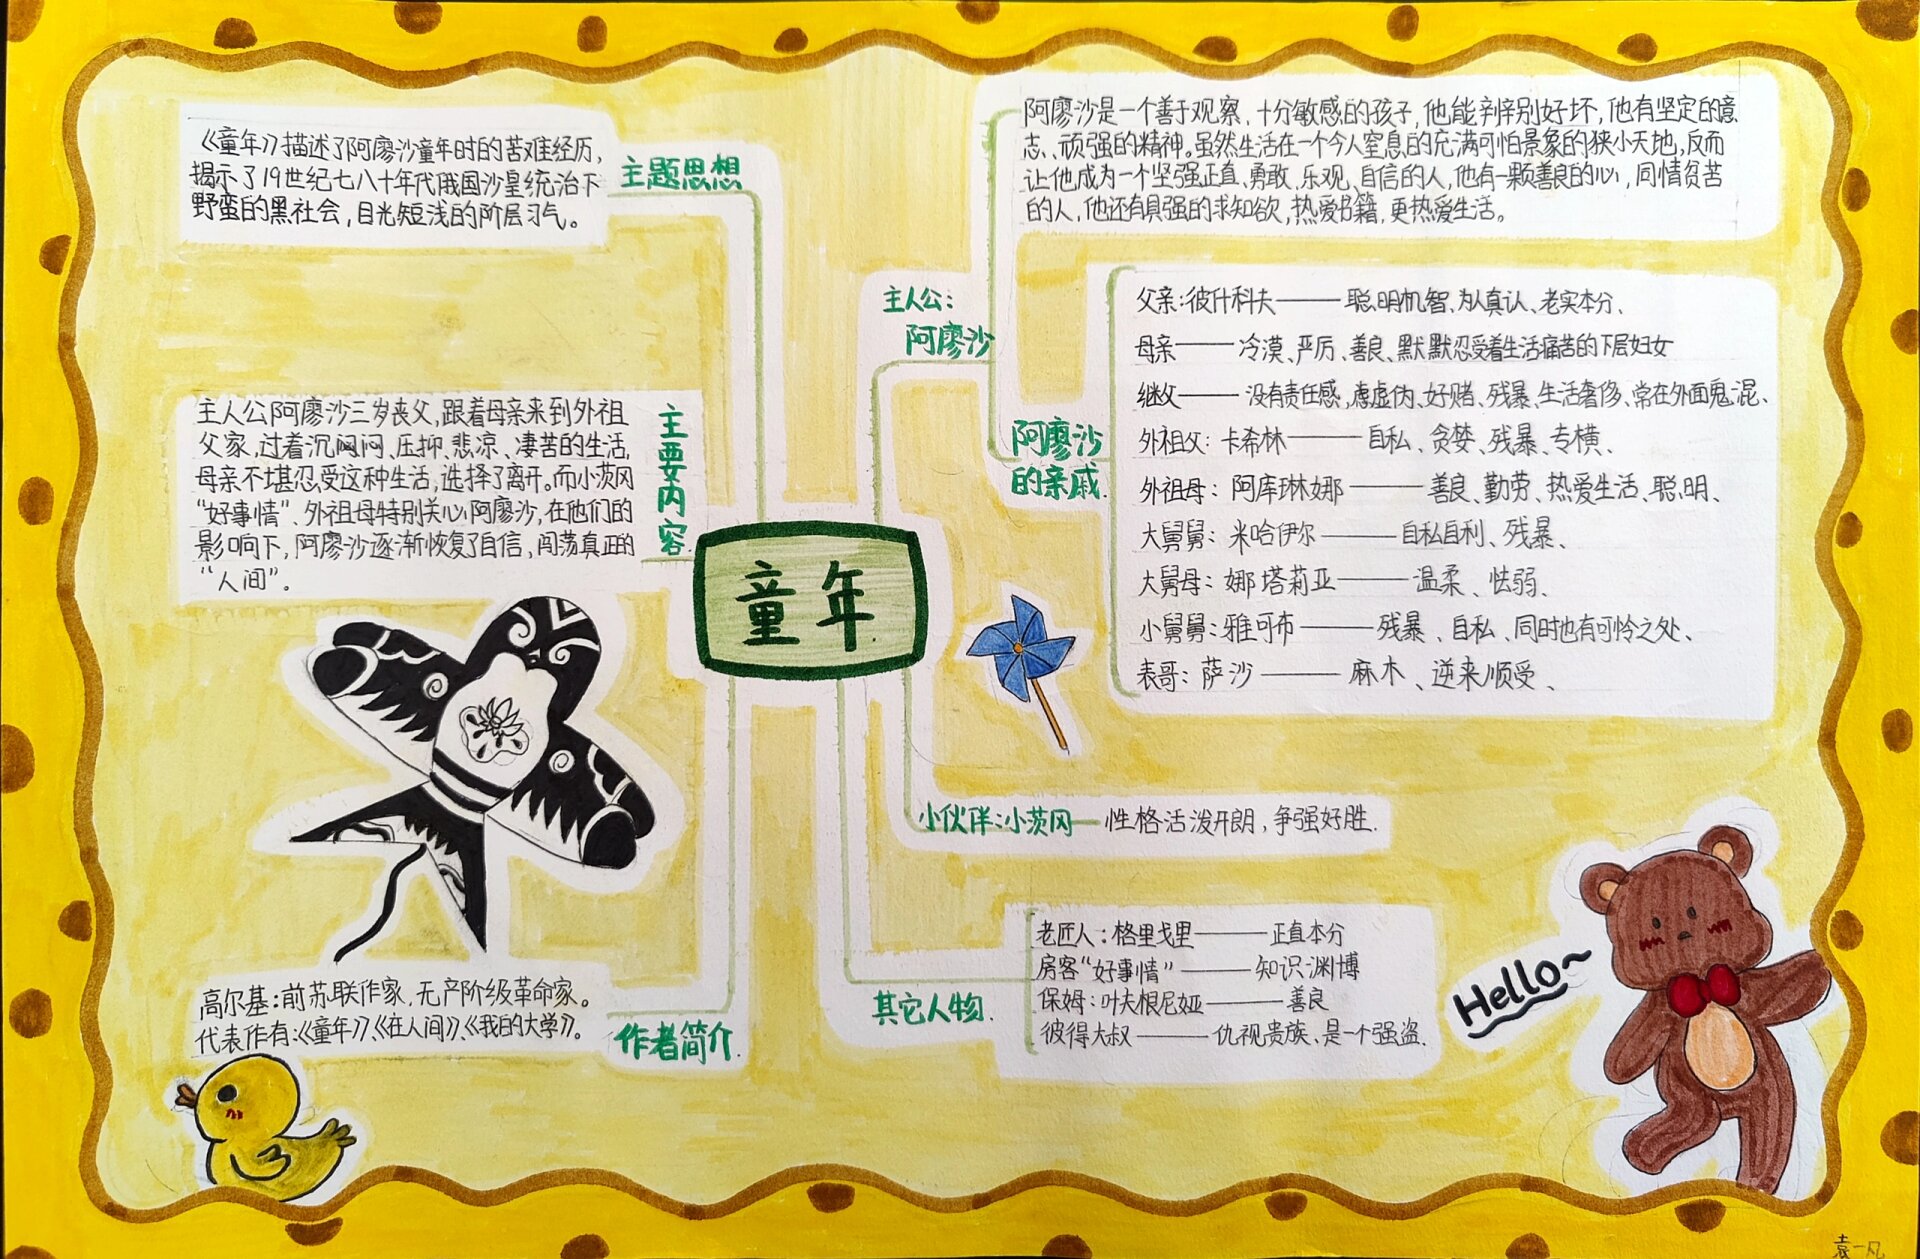 《童年》描述了阿廖沙童年时的苦难经历,
揭示了19世纪七八十年代俄国沙皇统治下
野蛮的黑社会,目光短浅的阶层习气。
主题思想
主人公阿廖沙三岁丧父,跟着母亲来到外祖
父家,过着沉闷闷、压抑、悲凉、凄苦的生活,
母亲不堪忍受这种生活,选择了离开。而小茨冈
“好事情”、外祖母特别关心阿廖沙,在他们的
影响下,阿廖沙逐渐恢复了自信,闯荡真正的
“人间”。
主要内容
童年
高尔基:前苏联作家,无产阶级革命家。
代表作有:《童年》、《在人间》、《我的大学》。
作者简介
主人公:
阿廖沙
阿廖沙是一个善于观察,十分敏感的孩子,他能辨别好坏,他有坚定的意
志、顽强的精神。虽然生活在一个令人窒息的充满可怕景象的狭小天地,反而
让他成为一个坚强、正直、勇敢、乐观、自信的人,他有一颗善良的心,同情贫苦
的人,他还有具强的求知欲,热爱书籍,更热爱生活。
阿廖沙
的亲戚
父亲:彼什科夫——聪明机智、为人真认、老实本分、
母亲——冷漠、严厉、善良、默默忍受着生活痛苦的下层妇女
继父——没有责任感,虚伪、好赌、残暴、生活奢侈、常在外面鬼混、
外祖父:卡希林——自私、贪婪、残暴、专横、
外祖母:阿库琳娜——善良、勤劳、热爱生活、聪明、
大舅舅:米哈伊尔——自私自利、残暴、
大舅母:娜塔莉亚——温柔、怯弱、
小舅舅:雅可布——残暴、自私、同时也有可怜之处、
表哥:萨沙——麻木、逆来顺受、
小伙伴:小茨冈——性格活泼开朗,争强好胜.
其它人物.
老匠人:格里戈里——正直本分
房客“好事情”——知识渊博
保姆:叶夫根尼娅——善良
彼得大叔——仇视贵族、是一个强盗.
Hello~
袁一凡